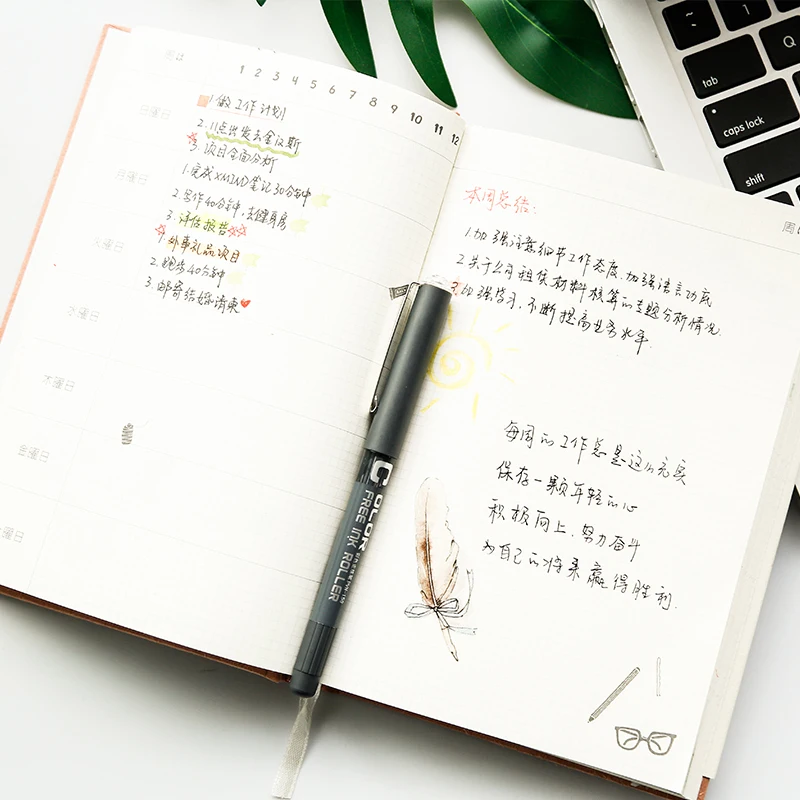 周は
1 2 3 4 5 6 7 8 9 10 11 12
日曜日
1.做工作计划
2.11点出发去金汉斯
3.项目全面分析
月曜日
1.完成XMIND笔记30分钟
2.写作40分钟,去健身房
3.评估报告
火曜日
1.外事礼品项目
2.跑步40分钟
3.邮寄结婚请柬
水曜日
木曜日
金曜日
曜日
本周总结:
1.加强注意细节工作态度,加强语言功底
2.关于公司租赁材料核算的专题分析情况.
3.加强学习,不断提高业务水平.
每周的工作总是这的充实
保存一颗年轻的心
积极向上.努力奋斗
为自己的将来赢得胜利.
COLOR
FREE INK ROLLER
周は
~
tab
caps lock
shift
1
Q
A
Z